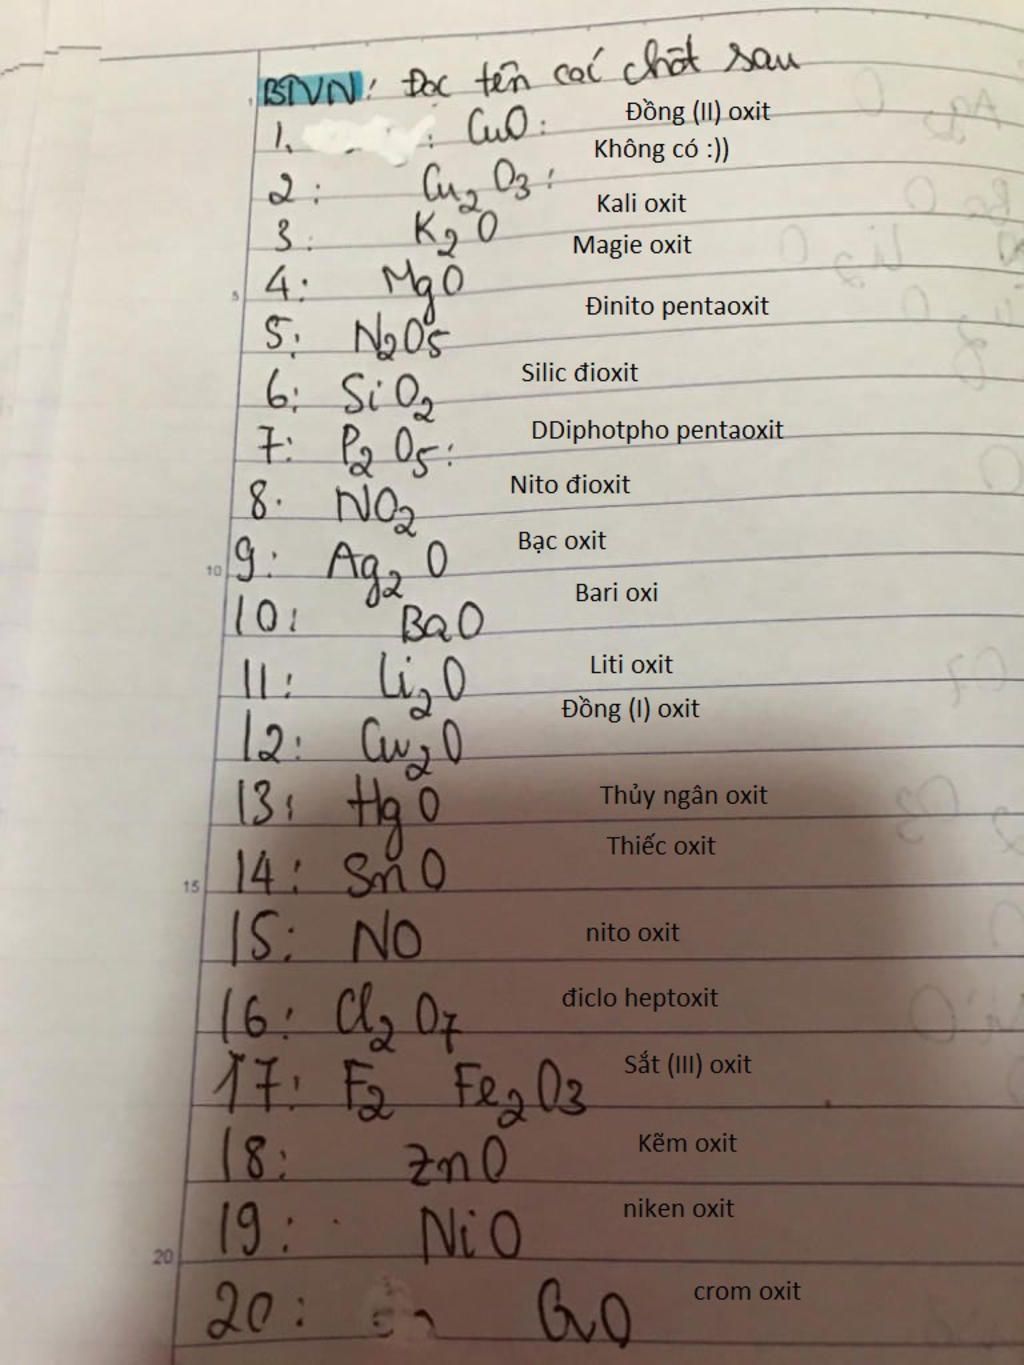 BTVN: Đọc tên các chất sau
1. : CuO: Đồng (II) oxit
2: Cu2O3: Không có :))
3: K2O Kali oxit
4: MgO Magie oxit
5
5: N2O5 Đinito pentaoxit
6: SiO2 Silic đioxit
7: P2O5: DDiphotpho pentaoxit
8. NO2 Nito đioxit
10
9: Ag2O Bạc oxit
10: BaO Bari oxi
11: Li2O Liti oxit
12: Cu2O Đồng (I) oxit
13: HgO Thủy ngân oxit
14: SnO Thiếc oxit
15
15: NO nito oxit
16: Cl2O7 điclo heptoxit
17: F2 Fe2O3 Sắt (III) oxit
18: ZnO Kẽm oxit
19: NiO niken oxit
20
20: CrO crom oxit